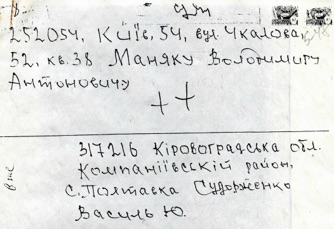 252054, Київ, 54, вул. Чкалова,
52, кв. 38 Маняку Володимиру
Антоновичу
317216 Кіровоградська обл.
Компаніївсскій район,
с. Полтавка Судорженко
Василь Ю.